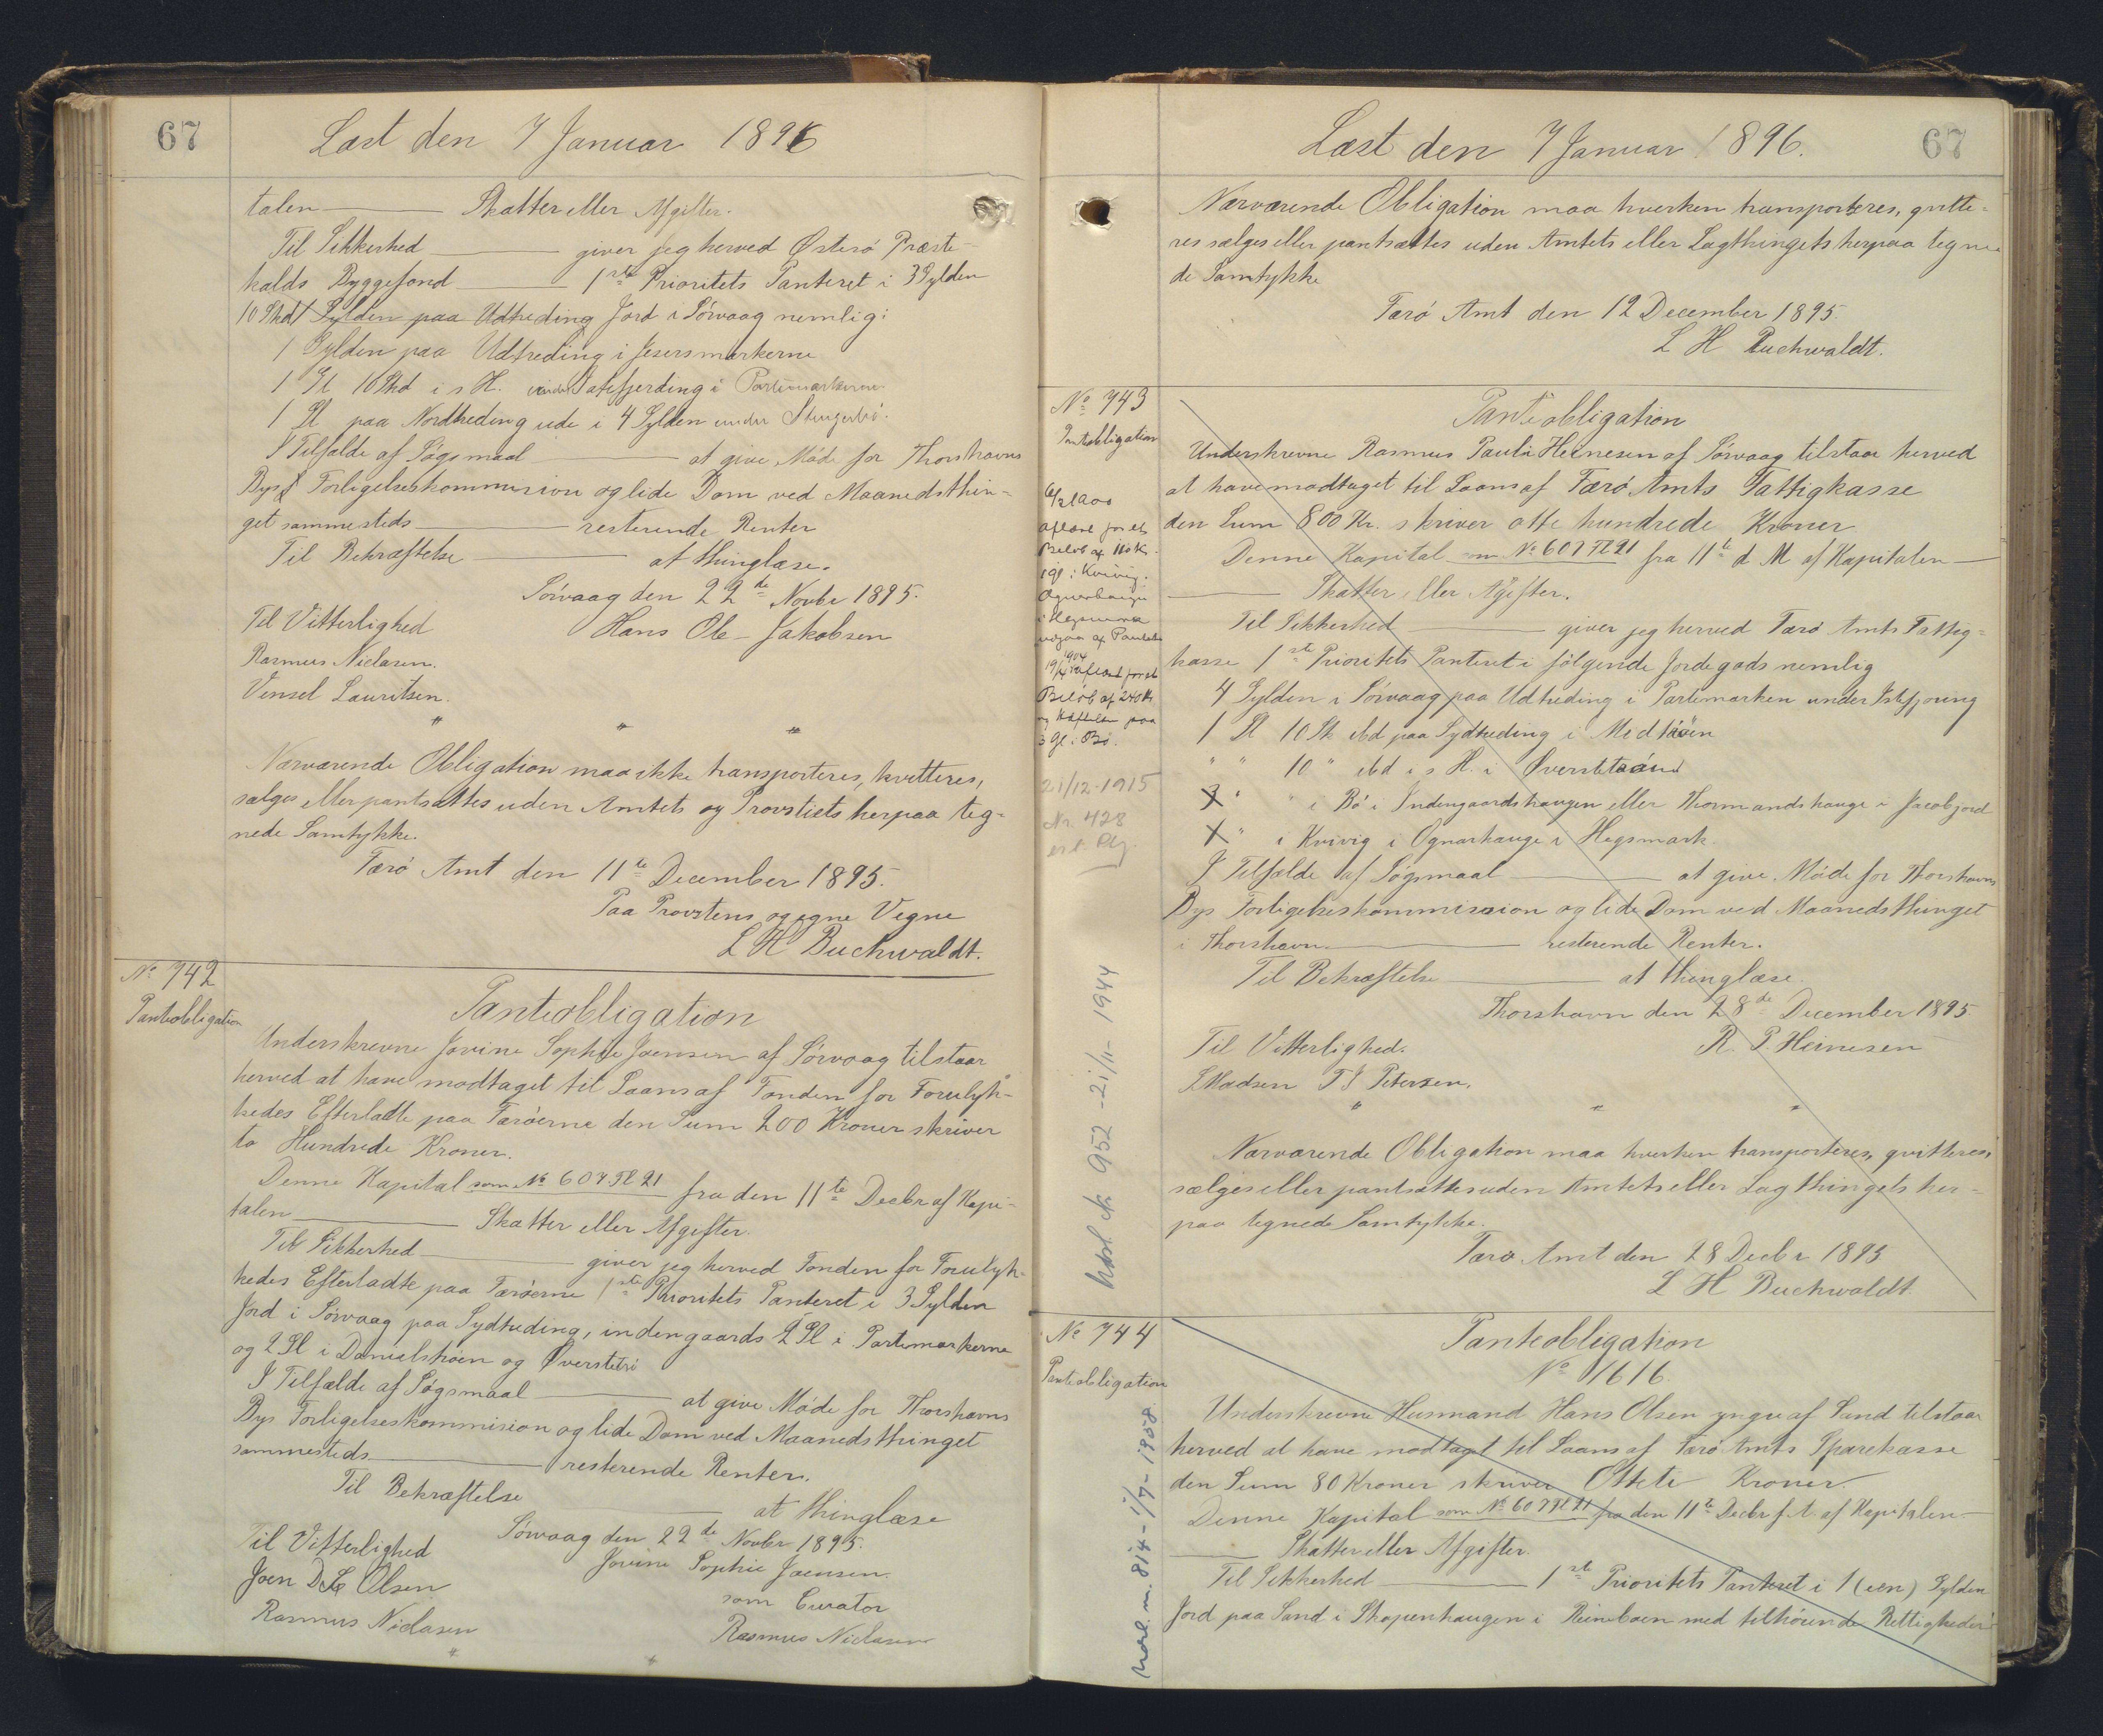 67
Læst den 7 Januar 1896
talen ——— Skatter eller Afgifter.
Til Sikkerhed ——— giver jeg herved Østerø Præste-
kalds Byggefond ——— 1ste Prioritets Panteret i 3 Gylden
10 Skd Gylden paa Udtreding Jord i Sørvaag nemlig:
1 Gylden paa Udtreding i
1 Gl 10 Skd i s H. i Partimarkerne
1 Gl paa Nordtreding ude i 4 Gylden under
I Tilfælde af Søgsmaal ——— at give Møde for Thorshavns
Byes Forligelseskommission og lide Dom ved Maanedsthin-
get sammesteds ——— resterende Renter
Til Bekræftelse ——— at thinglæse.
Sørvaag den 22de Novbr 1895.
Til Vitterlighed Hans Ole Jakobsen
Rasmus Niclasen.
Vensel Lauritsen.
" " "
Nærværende Obligation maa ikke transporteres, kvitteres,
sælges eller pantsættes uden Amtets og Provstiets herpaa teg-
nede Samtykke.
Færø Amt den 11te December 1895.
Paa Provstens og egne Vegne
L H Buchwaldt.
No 742
Panteobligation
Panteobligation
Underskrevne Jovine Sophie Joensen af Sørvaag tilstaar
herved at have modtaget til Laans af Fonden for Forulyk-
kedes Efterladte paa Færøerne den Sum 200 Kroner skriver
to Hundrede Kroner.
Denne Kapital som No 607 Fl 21 fra den 11te Decbr af Kapi-
talen ——— Skatter eller Afgifter.
Til Sikkerhed ——— giver jeg herved Fonden for Forulyk-
kedes Efterladte paa Færøerne 1ste Prioritets Panteret i 3 Gylden
Jord i Sørvaag paa Sydtreding, indengaards 2 Gl i Partimarkerne
og 2 Gl i Danielstrøen og Øverstetrø
I Tilfælde af Søgsmaal ——— at give Møde for Thorshavns
Bys Forligelseskommision og lide Dom ved Maanedsthinget
sammesteds ——— resterende Renter.
Til Bekræftelse ——— at thinglæse
Sørvaag den 22de Novbr 1895.
Til Vitterlighed Jovine Sophie Joensen.
Joen D Olsen som Curator
Rasmus Niclasen Rasmus Niclasen
67
Læst den 7 Januar 1896.
Nærværende Obligation maa hverken transporteres, qvitte-
res sælges eller pantsættes uden Amtets eller Lagthingets herpaa tegne-
de Samtykke
Færø Amt den 12 December 1895.
L H Buchwaldt.
No 743
Panteobligation
Panteobligation
Underskrevne Rasmus Pauli Heinesen af Sørvaag tilstaar herved
at have modtaget til Laans af Færø Amts Fattigkasse
den Sum 800 Kr. skriver otte hundrede Kroner
Denne Kapital som No 607 Fl 21 fra 11te d M af Kapitalen ———
——— Skatter eller Afgifter.
Til Sikkerhed ——— giver jeg herved Færø Amts Fattig-
kasse 1ste Prioritets Panteret i følgende Jordegods nemlig
4 Gylden i Sørvaag paa Udtreding i Partimarken under
1 Gl 10 Sk ibd paa Sydtreding i
" " 10 " ibd i s H. i
3 " " i Bø i Indengaardshaugen eller Thormandshauge i Jacobsjord
1 " i Kvivig i Ognarhauge i Hegsmark.
I Tilfælde af Søgsmaal ——— at give Møde for Thorshavns
Bys Forligelseskommission og lide Dom ved Maanedsthinget
i Thorshavn ——— resterende Renter.
Til Bekræftelse ——— at thinglæse.
Thorshavn den 28de December 1895
Til Vitterlighed. R. P. Heinesen
L Madsen T J Petersen.
" " "
Nærværende Obligation maa hverken transporteres, qvitteres,
sælges eller pantsættes uden Amtets eller Lagthingets her-
paa tegnede Samtykke.
Færø Amt den 28 Decbr 1895
L H Buchwaldt.
aflæst for et
Beløb af 110 K
1 gl i Kvivig.
Ognerhauge
i Hegsmark
udgaar af Pantet
1904
19/4 aflæst for et
Beløb af 240 Kr
og Hæftelsen paa
3 gl i Bø.
21/12-1915
Nr. 428
952 - 21/11-1944
No 744
Panteobligation
814 - 1/7-1958.
Panteobligation
No 1616.
Underskrevne Husmand Hans Olsen yngre af Sand tilstaar
herved at have modtaget til Laans af Færø Amts Sparekasse
den Sum 80 Kroner skriver Otteti Kroner.
Denne Kapital som No 607 Fl 21 fra den 11te Decbr f. A. af Kapitalen ———
——— Skatter eller Afgifter.
Til Sikkerhed ——— 1ste Prioritets Panteret i 1 (een) Gylden
Jord paa Sand i Skopenhaugen i med tilhørende Rettigheder